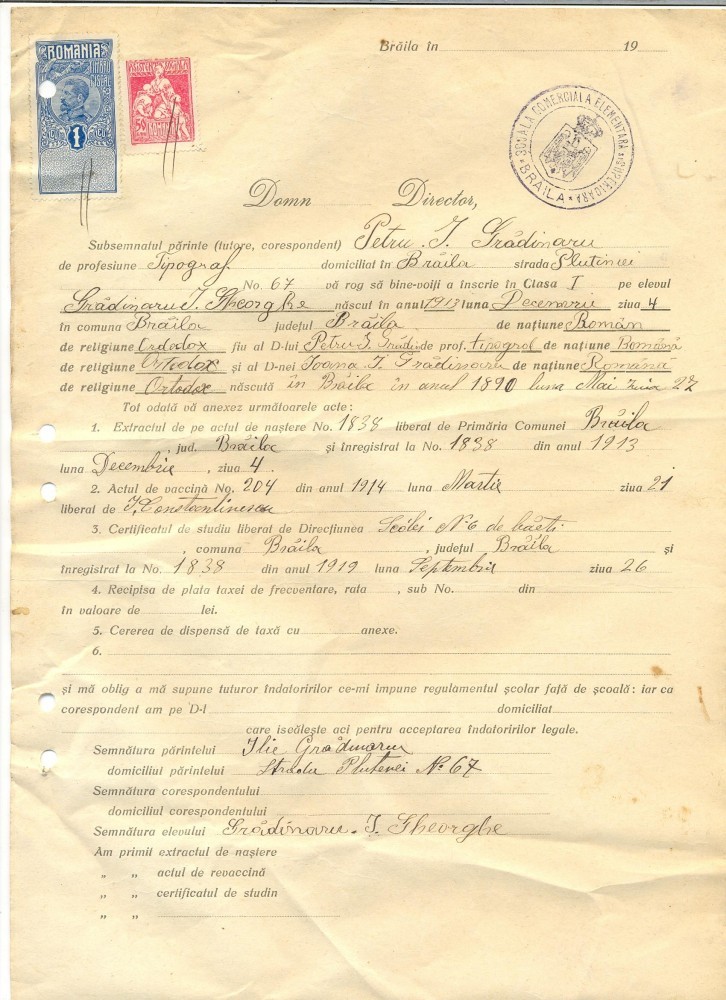 Brăila în 19
ROMANIA
TIMBRU FISCAL
1
50
ROMANIA
ȘCOALA COMERCIALA ELEMENTARA și SUPERIOARA
* BRAILA *
Domn Director,
Subsemnatul părinte (tutore, corespondent) Petru I. Grădinaru
de profesiune Tipograf domiciliat în Brăila strada Plutinei
No. 67 vă rog să bine-voiți a înscrie în Clasa I pe elevul
Grădinaru I. Gheorghe născut în anul 1913 luna Decemvrie ziua 4
în comuna Brăila județul Brăila de națiune Român
de religiune Ortodox fiu al D-lui Petru I. de prof. tipograf de națiune Română
de religiune Ortodox și al D-nei Ioana I. Grădinaru de națiune Română
de religiune Ortodox născută în Brăila în anul 1890 luna Mai ziua 27
Tot odată vă anexez următoarele acte:
1. Extractul de pe actul de naștere No. 1838 liberat de Primăria Comunei Brăila
, jud. Brăila și înregistrat la No. 1838 din anul 1913
luna Decembrie, ziua 4.
2. Actul de vaccină No. 204 din anul 1914 luna Martie ziua 21
liberat de I. Constantinescu
3. Certificatul de studiu liberat de Direcțiunea Școlei No 6 de băeți
, comuna Brăila, județul Brăila și
înregistrat la No. 1838 din anul 1919 luna Septembrie ziua 26
4. Recipisa de plata taxei de frecventare, rata , sub No. din
în valoare de lei.
5. Cererea de dispensă de taxă cu anexe.
6.
și mă oblig a mă supune tuturor îndatoririlor ce-mi impune regulamentul școlar față de școală: iar ca
corespondent am pe D-l domiciliat
care iscălește aci pentru acceptarea îndatoririlor legale.
Semnătura părintelui Ilie Grădinaru
domiciliul părintelui Strada Plutenei No 67
Semnătura corespondentului
domiciliul corespondentului
Semnătura elevului Grădinaru. I. Gheorghe
Am primit extractul de naștere
„ „ actul de revaccină
„ „ certificatul de studin
„ „